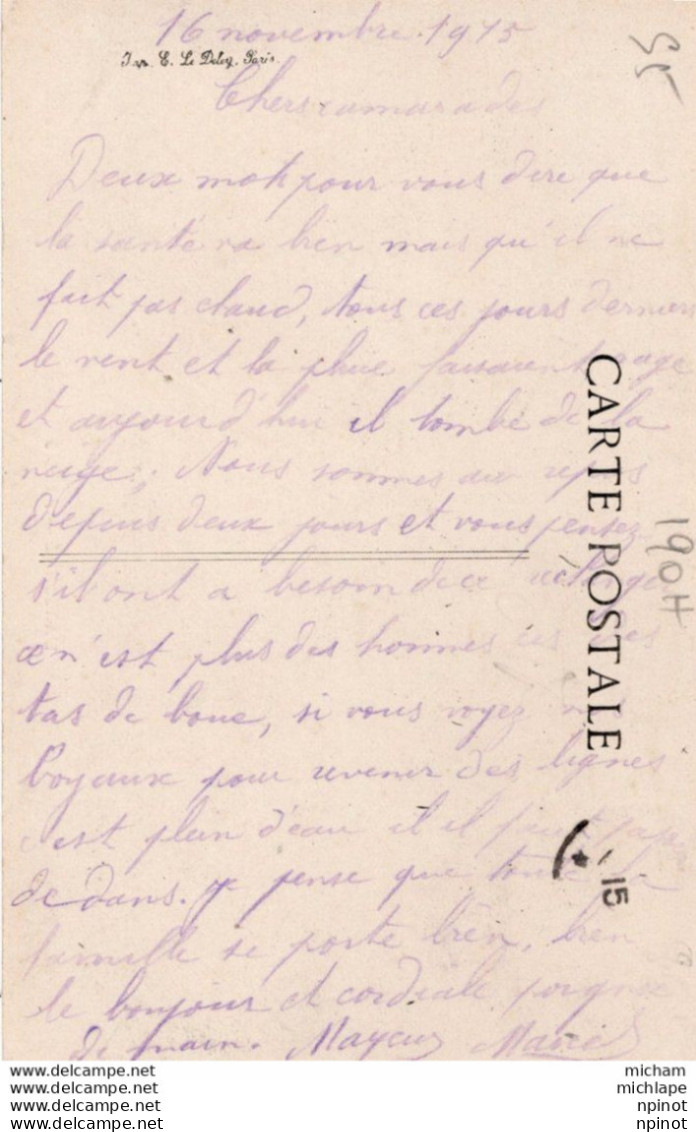 16 novembre 1915
Imp. E. Le Deley, Paris.
55
Chers camarades
Deux mots pour vous dire que
la santé va bien mais qu'il ne
fait pas chaud, tous ces jours derniers
le vent et la pluie faisaient rage
et aujourd'hui il tombe de la
neige; Nous sommes au repos
depuis deux jours et vous pensez
s'il ont a besoin de
ce n'est plus des hommes des
tas de boue, si vous voyez
boyaux pour revenir des lignes
c'est plein d'eau il
dedans. je pense que toute la
famille se porte bien, bien
le bonjour et cordiale poignée
de main.
CARTE POSTALE
190H
15
www.delcampe.net micham
www.delcampe.net michlape
www.delcampe.net npinot
www.delcampe.net npinot